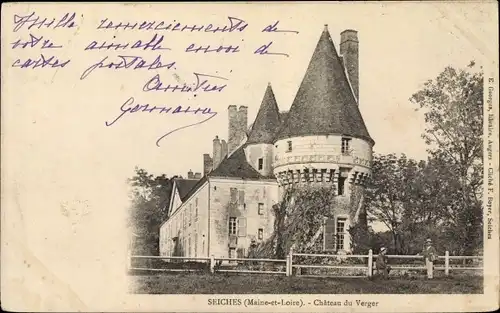 Mille remerciements de
votre aimable envoi de
cartes postales.
Amitiés
Germaine
E. Georges, libraire, Angers - Cliché F. Boyer, Seiches
SEICHES (Maine-et-Loire). - Château du Verger